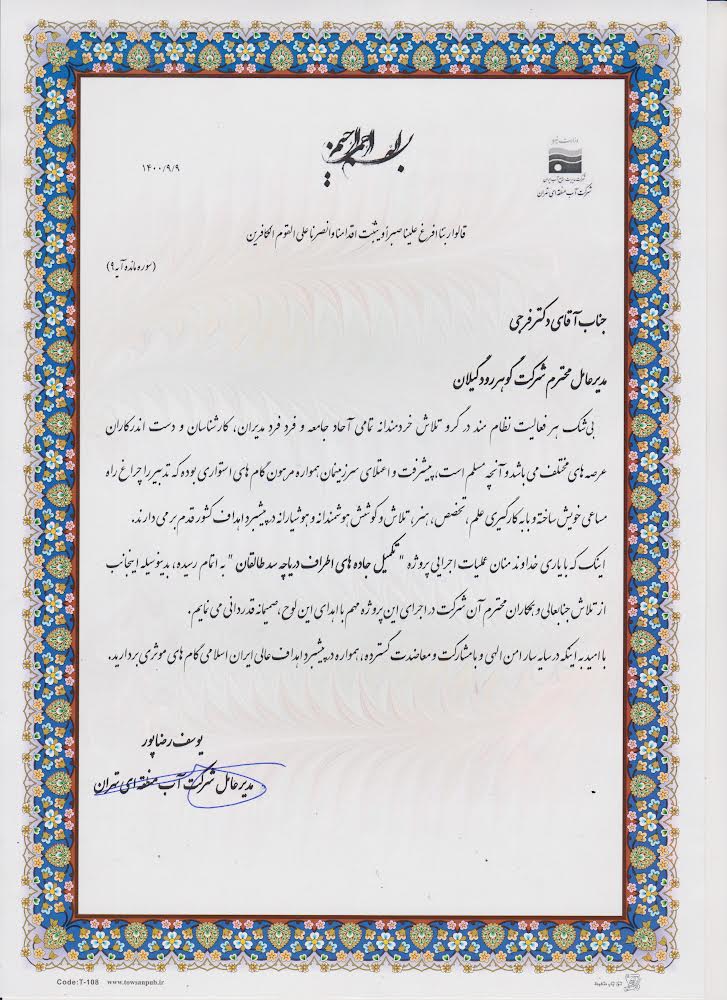 بسم الله الرحمن الرحیم
وزارت نیرو
شرکت مدیریت منابع آب ایران
شرکت آب منطقه ای تهران
۱۴۰۰/۹/۹
قالوا ربنا افرغ علینا صبراً و ثبت اقدامنا و انصرنا علی القوم الکافرین
(سوره مائده آیه ۹)
جناب آقای دکتر فرجی
مدیرعامل محترم شرکت گوهررود گیلان
بی شک هر فعالیت نظام مند در گرو تلاش خردمندانه تمامی آحاد جامعه و فرد فرد مدیران، کارشناسان و دست اندرکاران
عرصه های مختلف می باشد و آنچه مسلم است، پیشرفت و اعتلای سرزمینمان همواره مرهون گام های استواری بوده که تدبیر را چراغ راه
مساعی خویش ساخته و با به کارگیری علم، تخصص، هنر، تلاش و کوشش هوشمندانه و هوشیارانه در پیشبرد اهداف کشور قدم بر می دارند.
اینک که با یاری خداوند منان عملیات اجرایی پروژه " تکمیل جاده های اطراف دریاچه سد طالقان " به اتمام رسیده، بدینوسیله اینجانب
از تلاش جنابعالی و همکاران محترم آن شرکت در اجرای این پروژه مهم با اهدای این لوح، صمیمانه قدردانی می نمایم.
با امید به اینکه در سایه سار امن الهی و با مشارکت و معاضدت گسترده، همواره در پیشبرد اهداف عالی ایران اسلامی گام های موثری بردارید.
یوسف رضاپور
مدیرعامل شرکت آب منطقه ای تهران
Code:T-108 www.towsanpub.ir